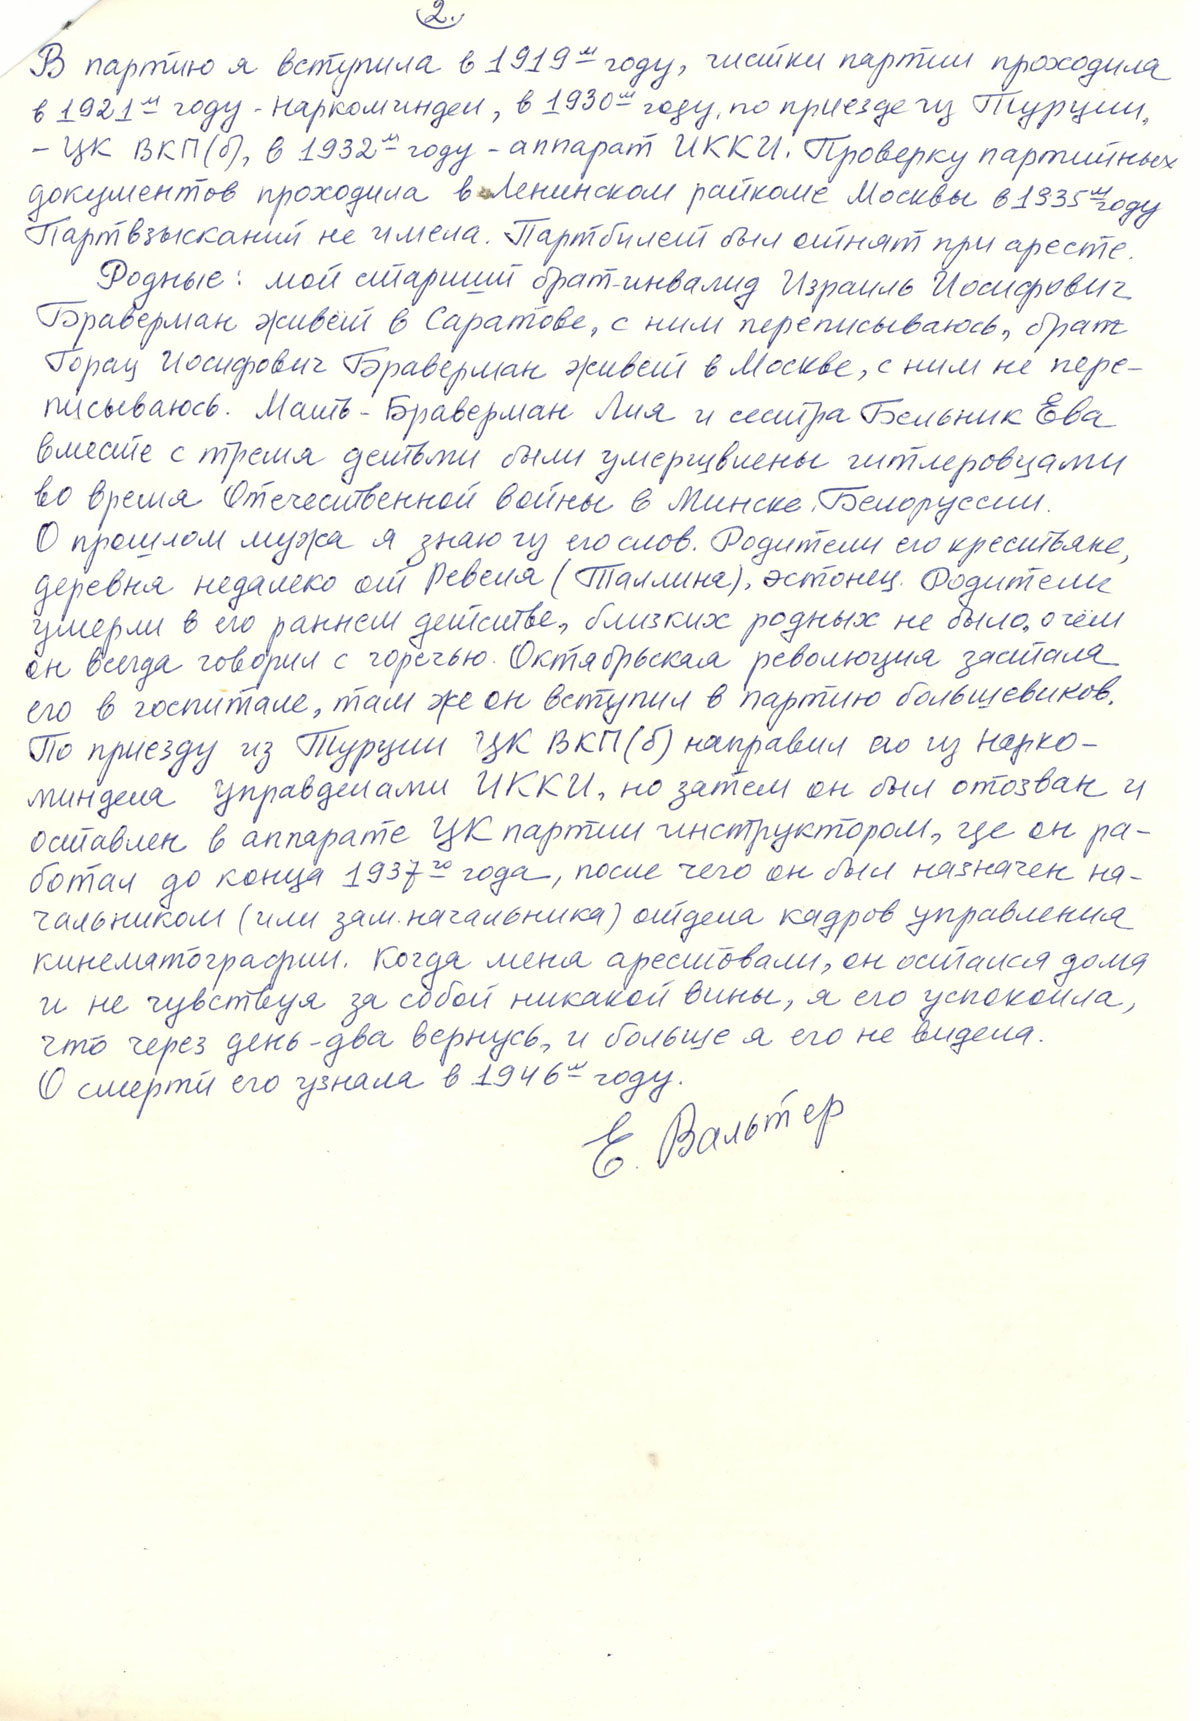 2.
В партию я вступила в 1919м году, чистки партии проходила
в 1921м году - Наркоминдел, в 1930м году, по приезде из Турции,
- ЦК ВКП(б), в 1932м году - аппарат ИККИ. Проверку партийных
документов проходила в Ленинском райкоме Москвы в 1935м году
Партвзысканий не имела. Партбилет был отнят при аресте.
Родные: мой старший брат-инвалид Израиль Иосифович
Браверман живёт в Саратове, с ним переписываюсь, брат
Горац Иосифович Браверман живёт в Москве, с ним не пере-
писываюсь. Мать - Браверман Лия и сестра Бельник Ева
вместе с тремя детьми были умерщвлены гитлеровцами
во время Отечественной войны в Минске, Белоруссии.
О прошлом мужа я знаю из его слов. Родители его крестьяне,
деревня недалеко от Ревеля (Таллина), эстонец. Родители
умерли в его раннем детстве, близких родных не было, о чём
он всегда говорил с горечью. Октябрьская революция застала
его в госпитале, там же он вступил в партию большевиков.
По приезду из Турции ЦК ВКП(б) направил его из Нарко-
миндела управделами ИККИ, но затем он был отозван и
оставлен в аппарате ЦК партии инструктором, где он ра-
ботал до конца 1937го года, после чего он был назначен на-
чальником (или зам.начальника) отдела кадров управления
кинематографии. Когда меня арестовали, он остался дома
и не чувствуя за собой никакой вины, я его успокоила,
что через день-два вернусь, и больше я его не видела.
О смерти его узнала в 1946м году.
Е. Вальтер